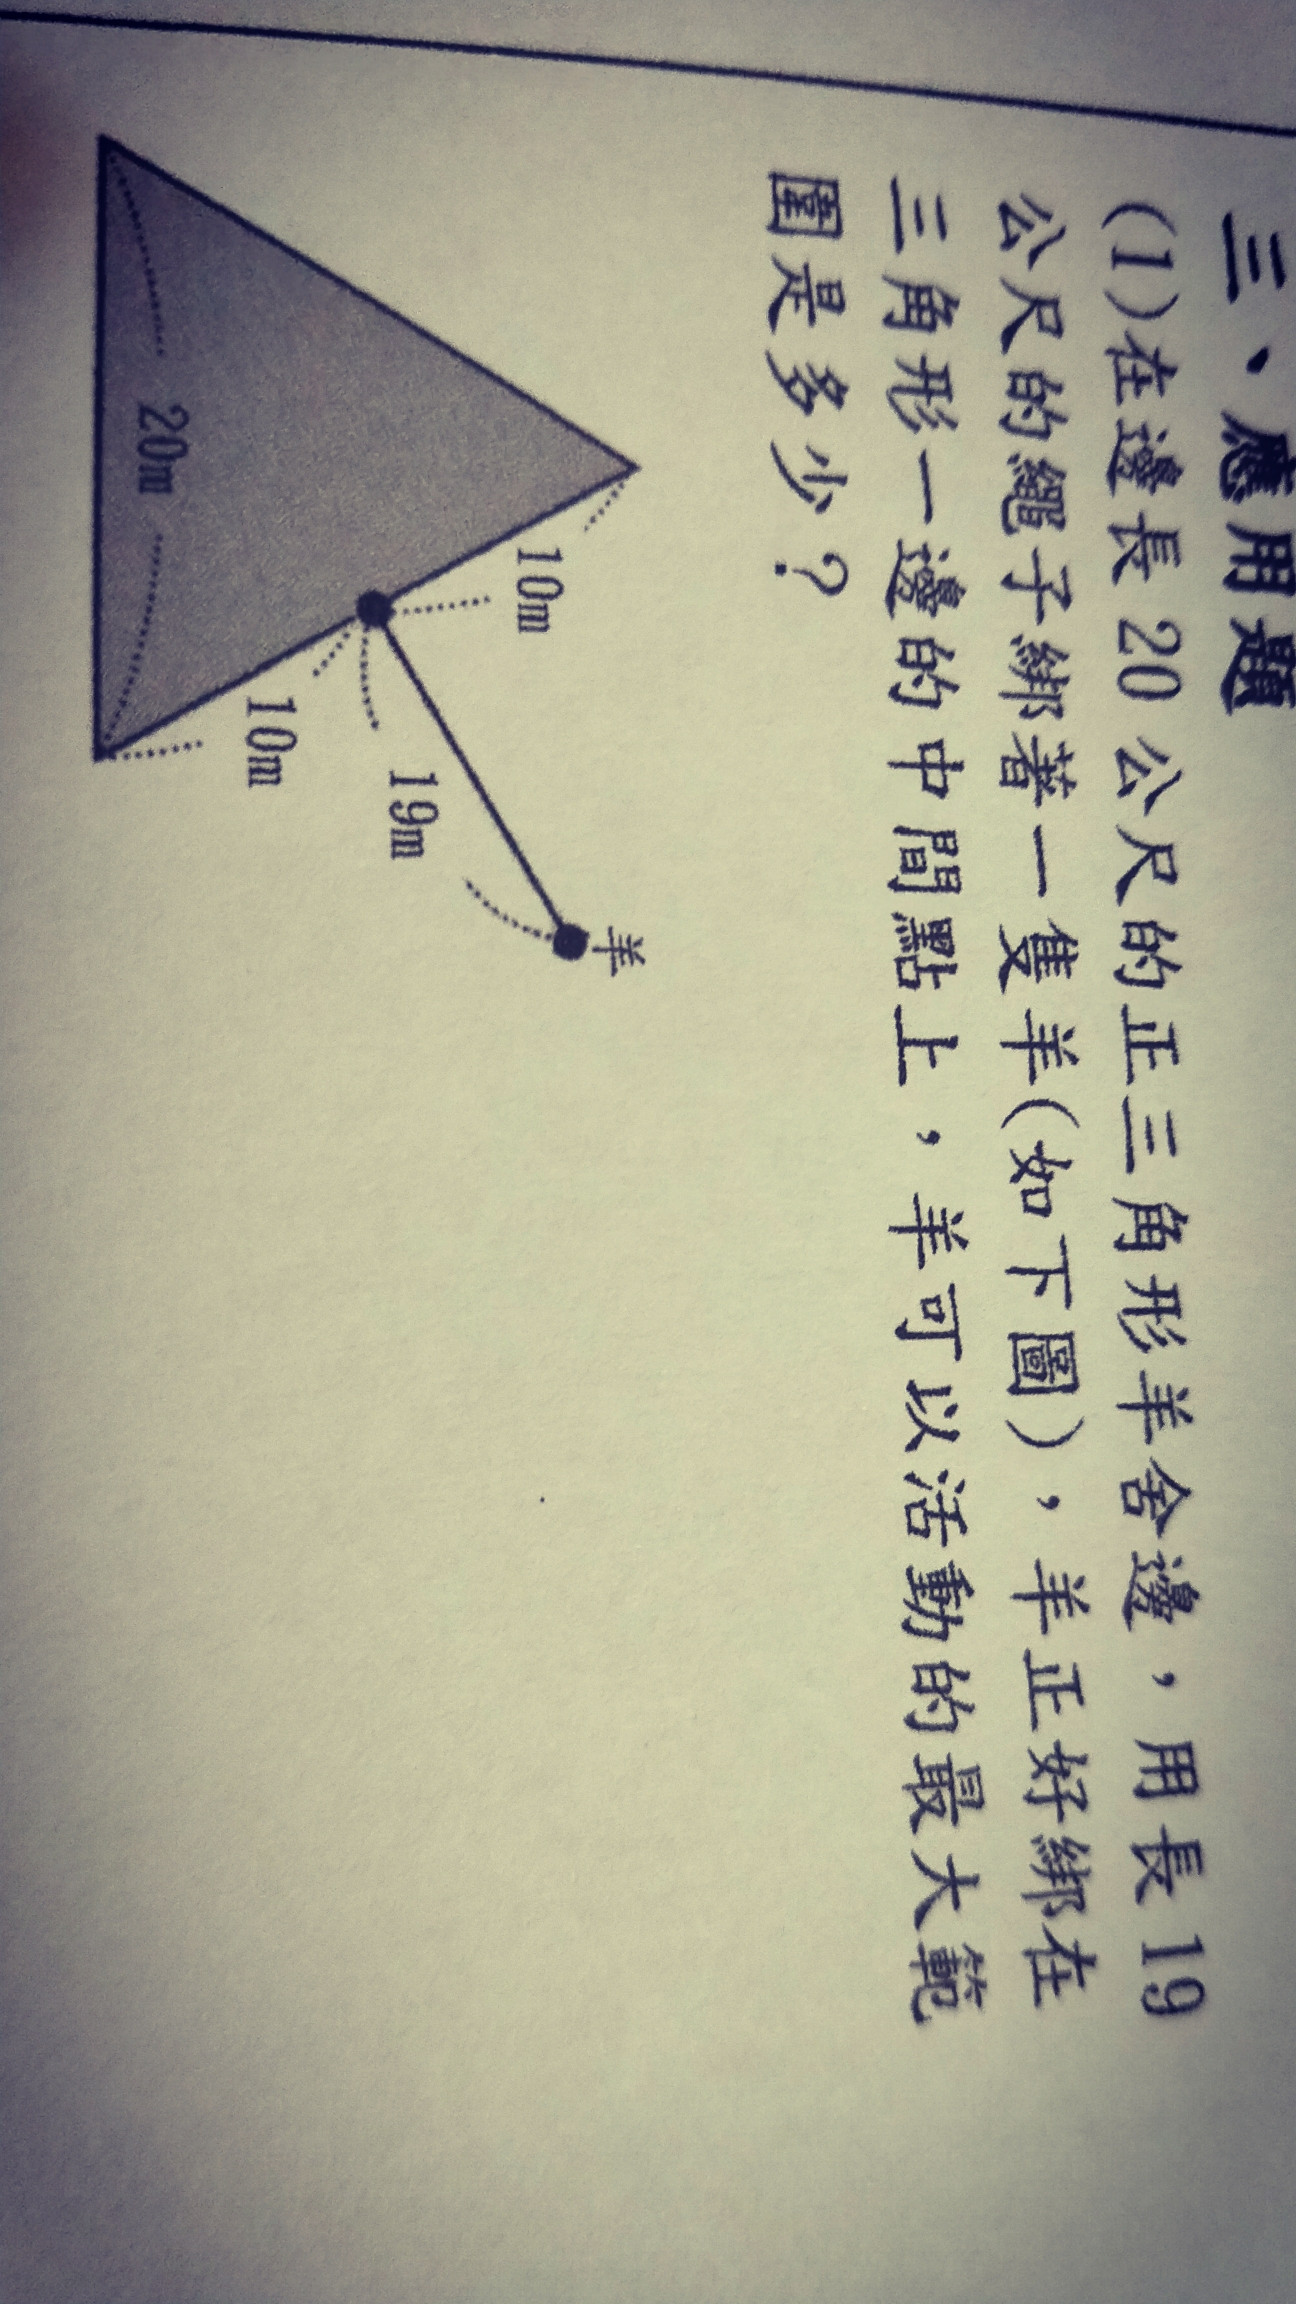 三、應用題
(1)在邊長 20 公尺的正三角形羊舍邊，用長 19
公尺的繩子綁著一隻羊(如下圖)，羊正好綁在
三角形一邊的中間點上，羊可以活動的最大範
圍是多少？
10m
羊
19m
10m
20m